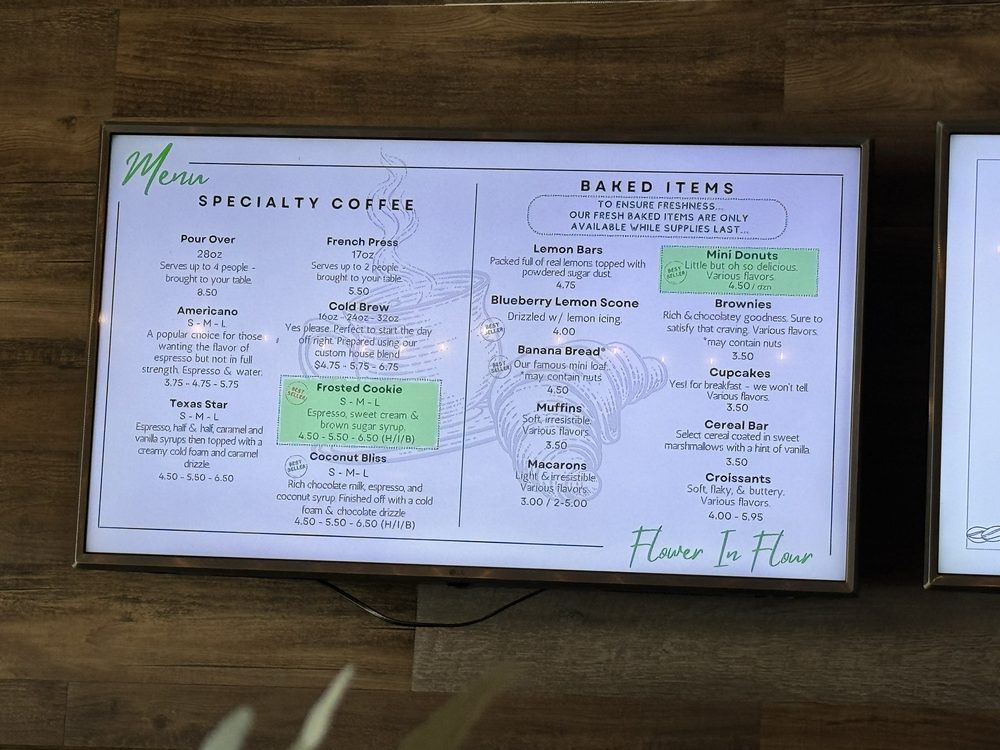 Menu
SPECIALTY COFFEE
Pour Over
28oz
Serves up to 4 people -
brought to your table.
8.50
Americano
S - M - L
A popular choice for those
wanting the flavor of
espresso but not in full
strength. Espresso & water.
3.75 - 4.75 - 5.75
Texas Star
S - M - L
Espresso, half & half, caramel and
vanilla syrups then topped with a
creamy cold foam and caramel
drizzle.
4.50 - 5.50 - 6.50
French Press
17oz
Serves up to 2 people -
brought to your table.
5.50
Cold Brew
16oz - 24oz - 32oz
Yes please. Perfect to start the day
off right. Prepared using our
custom house blend
$4.75 - 5.75 - 6.75
BEST SELLER
Frosted Cookie
S - M - L
Espresso, sweet cream &
brown sugar syrup.
4.50 - 5.50 - 6.50 (H/I/B)
BEST SELLER
Coconut Bliss
S - M - L
Rich chocolate milk, espresso, and
coconut syrup. Finished off with a cold
foam & chocolate drizzle
4.50 - 5.50 - 6.50 (H/I/B)
BAKED ITEMS
TO ENSURE FRESHNESS...
OUR FRESH BAKED ITEMS ARE ONLY
AVAILABLE WHILE SUPPLIES LAST...
Lemon Bars
Packed full of real lemons topped with
powdered sugar dust.
4.75
Blueberry Lemon Scone
BEST SELLER
Drizzled w/ lemon icing.
4.00
Banana Bread*
BEST SELLER
Our famous mini loaf.
*may contain nuts
4.50
Muffins
Soft, irresistible.
Various flavors.
3.50
Macarons
Light & irresistible
Various flavors.
3.00 / 2-5.00
Mini Donuts
BEST SELLER
Little but oh so delicious.
Various flavors.
4.50 / dzn
Brownies
Rich & chocolatey goodness. Sure to
satisfy that craving. Various flavors.
*may contain nuts
3.50
Cupcakes
Yes! for breakfast - we won't tell.
Various flavors.
3.50
Cereal Bar
Select cereal coated in sweet
marshmallows with a hint of vanilla.
3.50
Croissants
Soft, flaky, & buttery.
Various flavors.
4.00 - 5.95
Flower In Flour